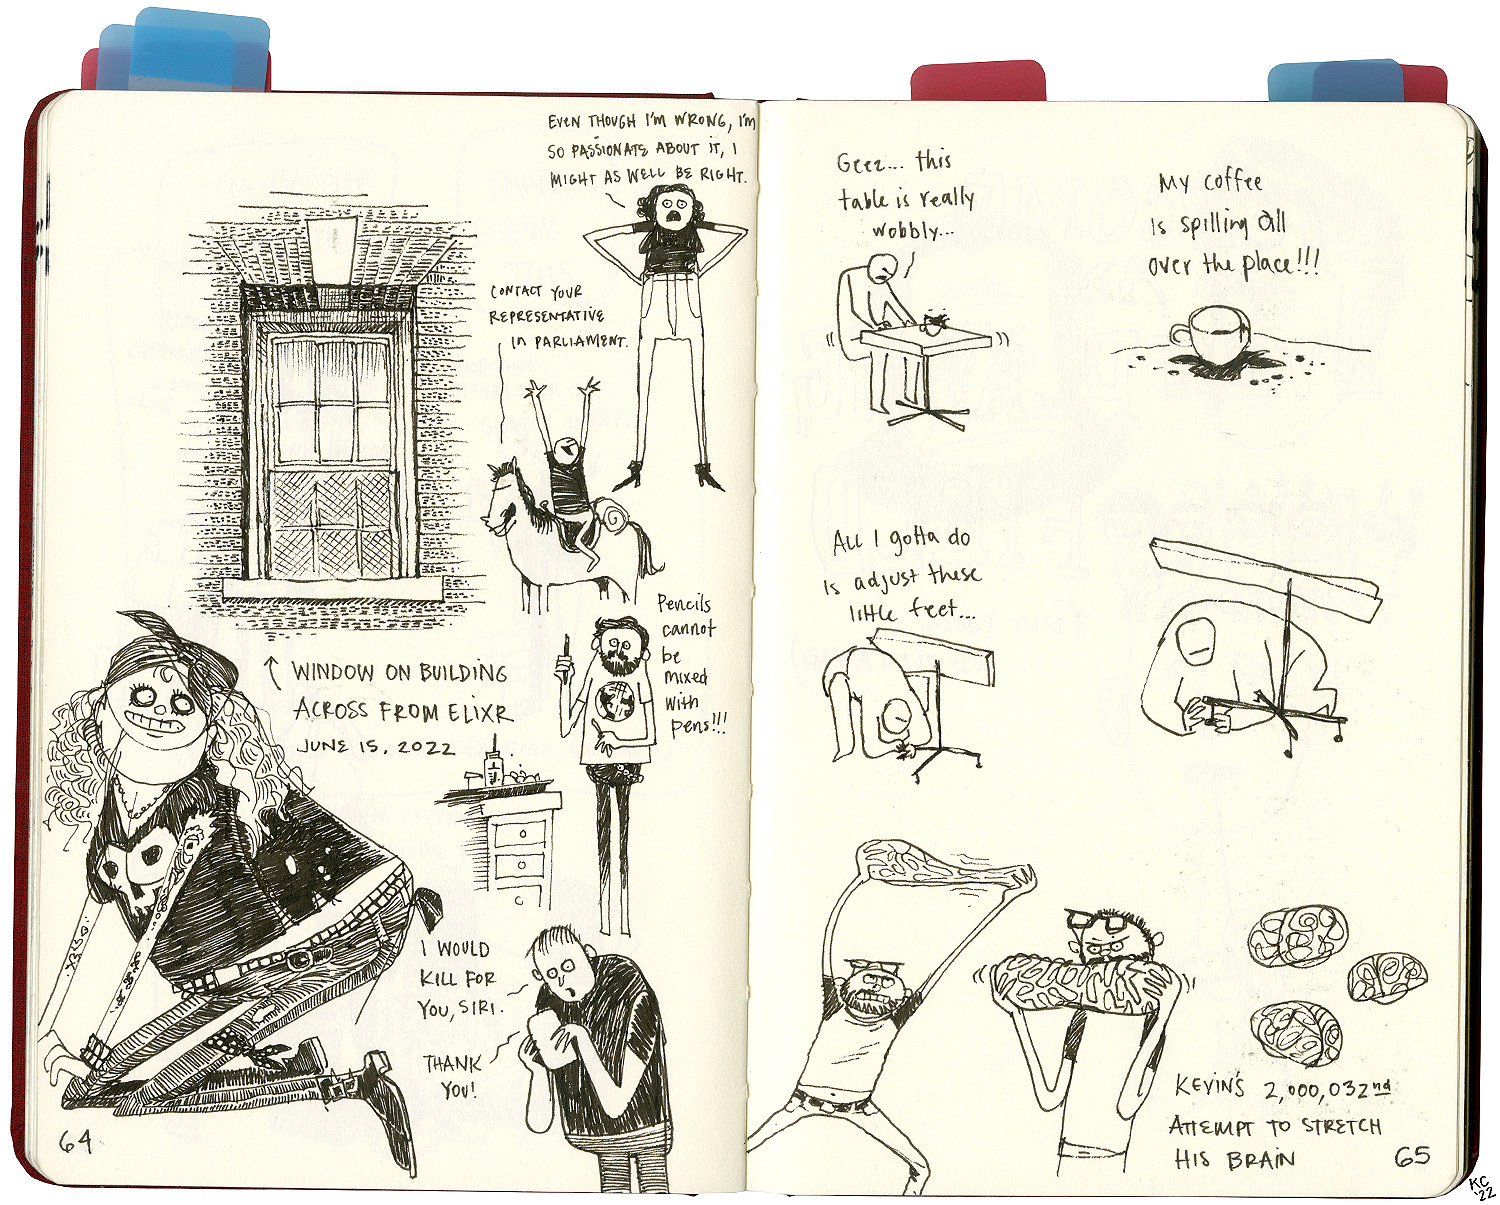 EVEN THOUGH I'M WRONG, I'M
SO PASSIONATE ABOUT IT, I
MIGHT AS WELL BE RIGHT.
CONTACT YOUR
REPRESENTATIVE
IN PARLIAMENT.
Pencils
cannot
be
mixed
with
pens!!!
↑ WINDOW ON BUILDING
ACROSS FROM ELIXR
JUNE 15, 2022
I WOULD
KILL FOR
YOU, SIRI.
THANK
YOU!
64
Geez... this
table is really
wobbly...
My coffee
is spilling all
over the place!!!
All I gotta do
is adjust these
little feet...
KEVIN'S 2,000,032nd
ATTEMPT TO STRETCH
HIS BRAIN
65
KC
'22